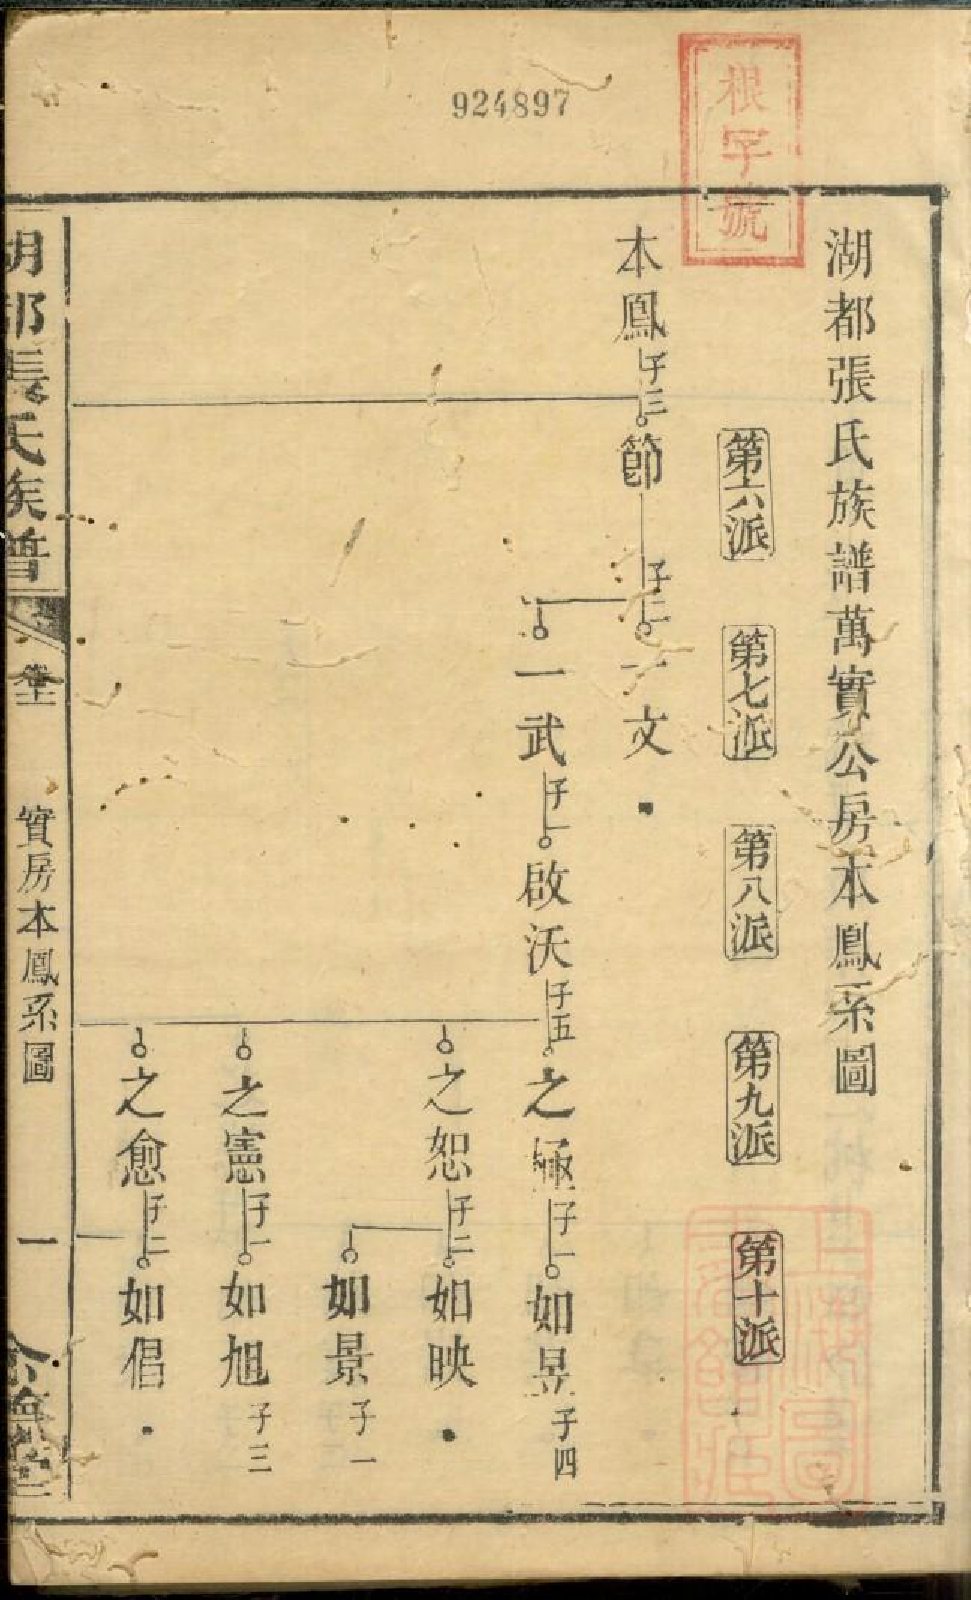 924897
根字號
湖都張氏族譜萬實公房本鳳系圖
第六派
第七派
第八派
第九派
第十派
本鳳
子三
節
子二
一文
一武
子一
啟沃
子五
之極
子一
如昱
子四
之恕
子二
如映
如景
子一
之憲
子一
如旭
子三
之愈
子二
如倡
湖都張氏族譜
實房本鳳系圖
一